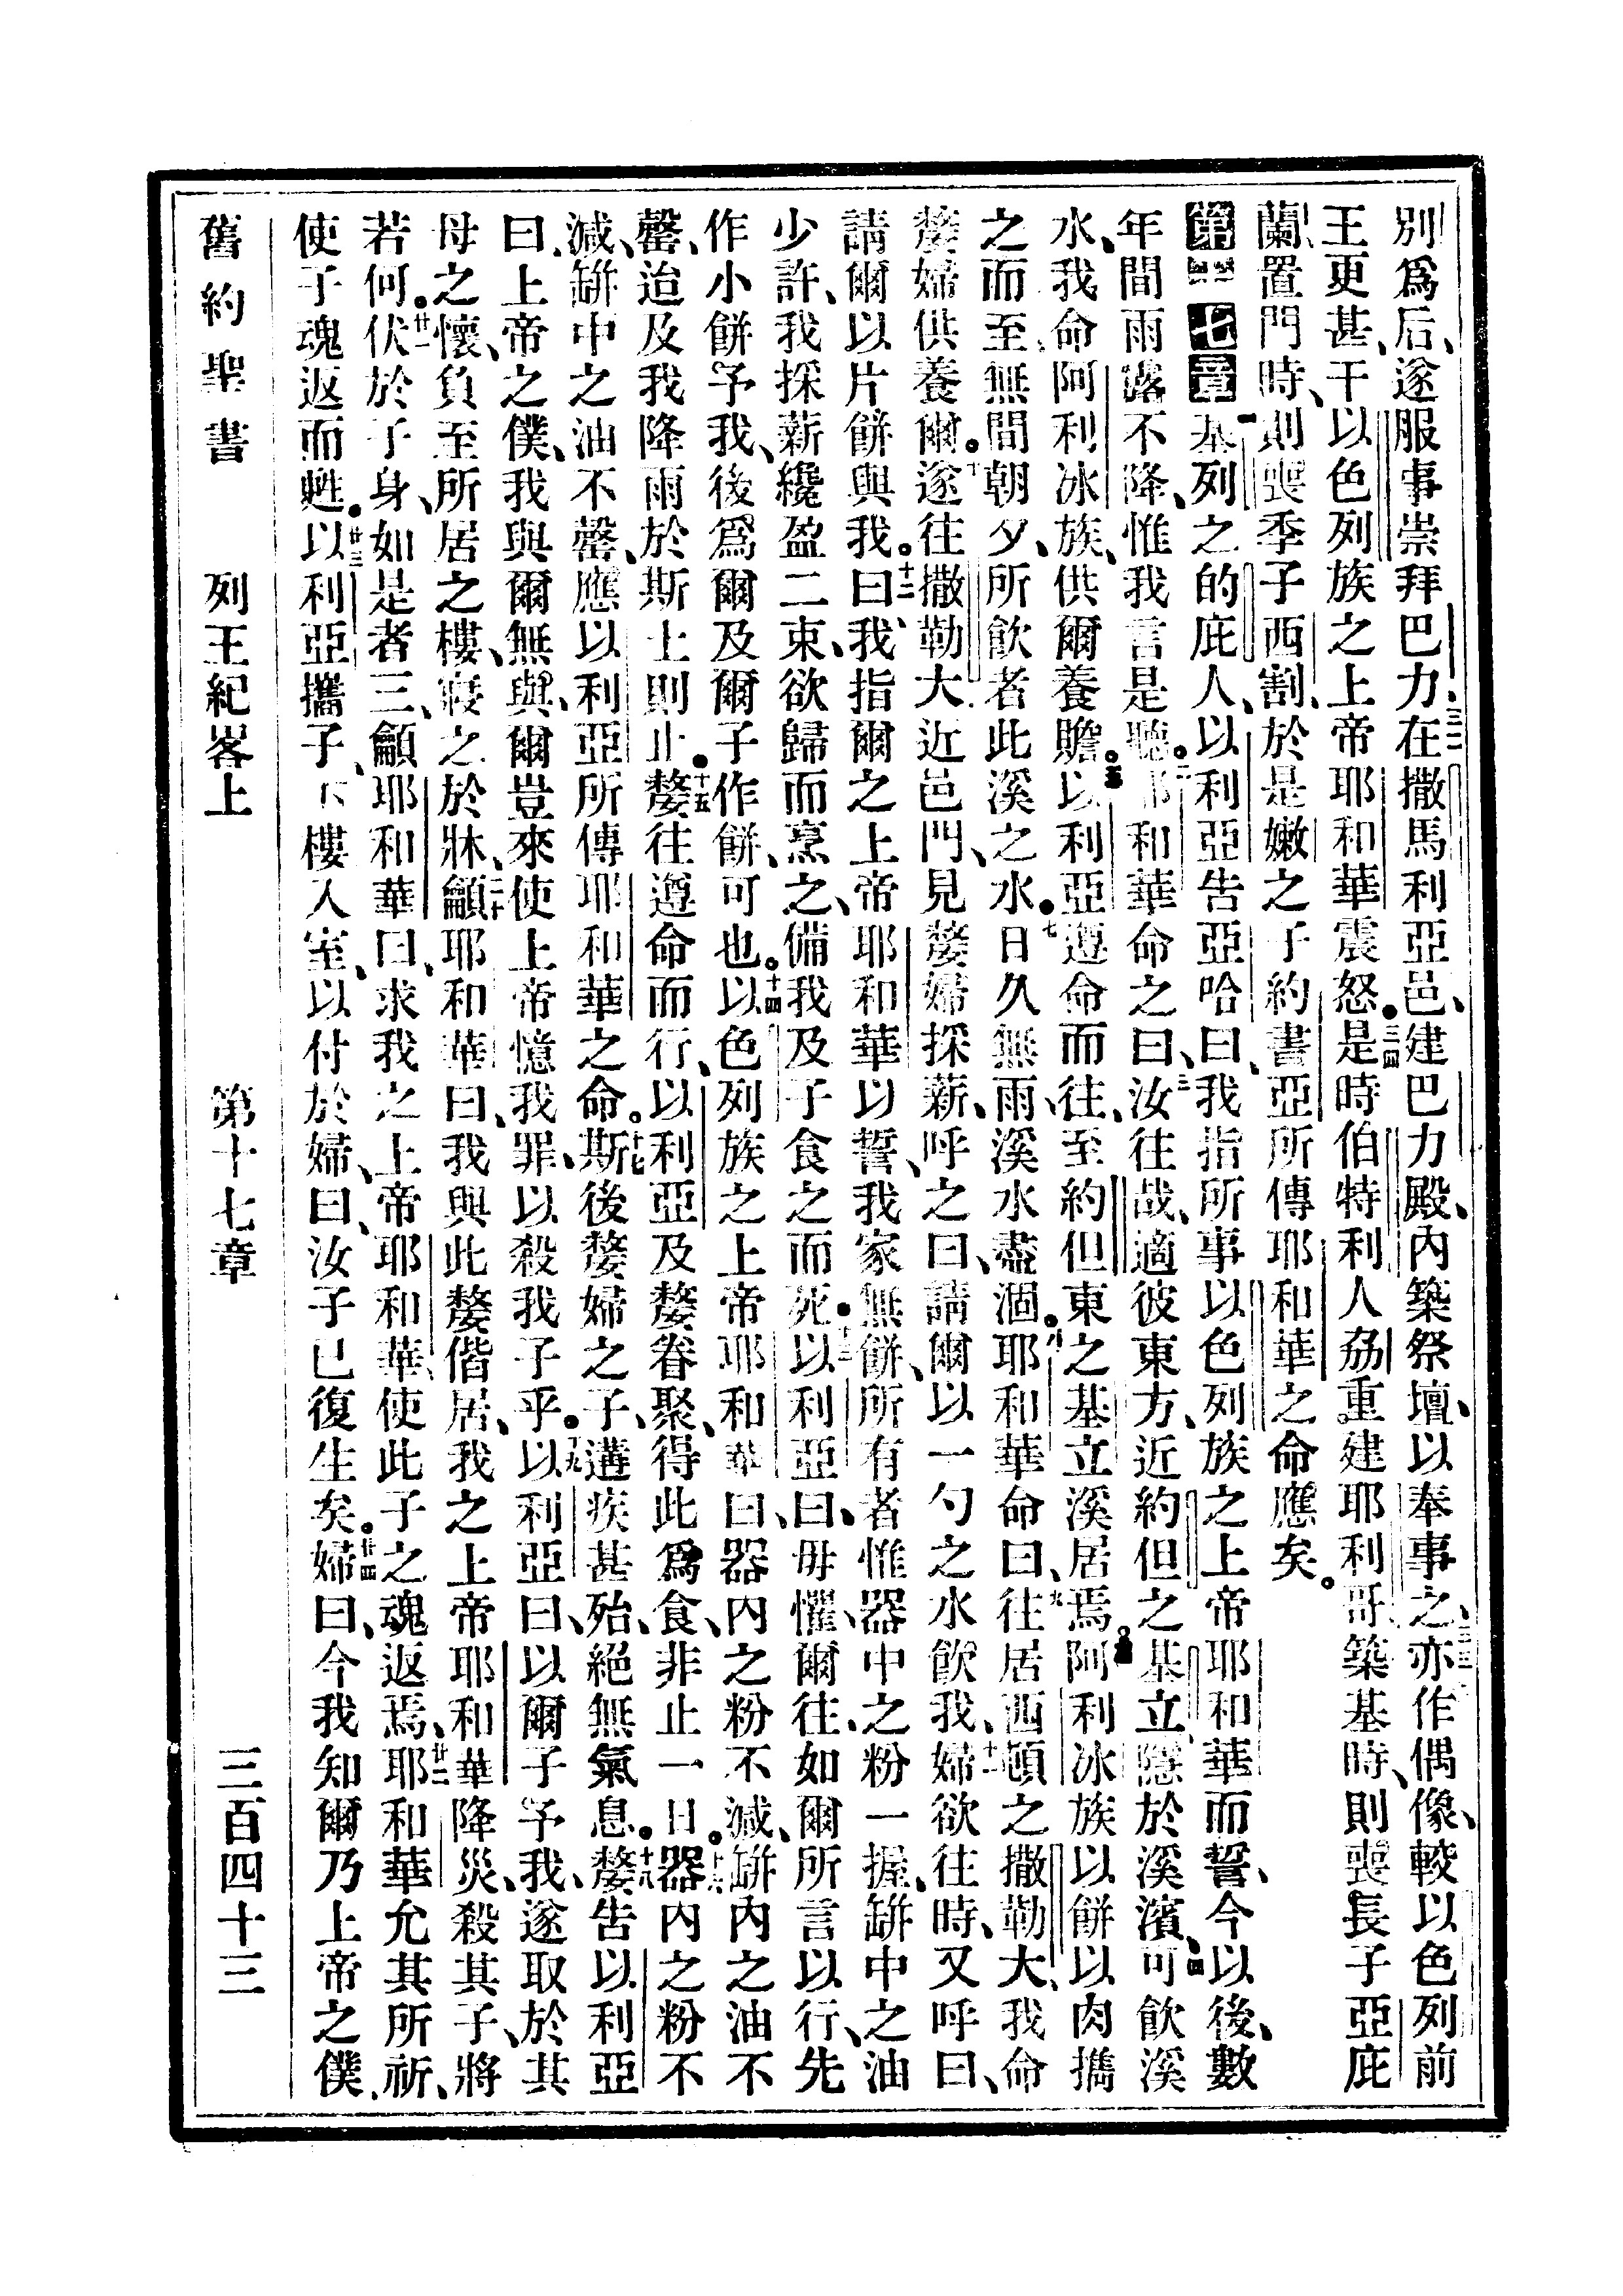 別爲后、遂服事崇拜巴力、三二在撒馬利亞邑、建巴力殿、內築祭壇、以奉事之、三三亦作偶像、較以色列前
王更甚、干以色列族之上帝耶和華震怒。三四是時伯特利人劦重建耶利哥、築基時、則喪長子亞庇
蘭、置門時、則喪季子西割、於是嫩之子約書亞所傳耶和華之命應矣。
第十七章 一基列之的庇人、以利亞告亞哈曰、我指所事以色列族之上帝耶和華而誓、今以後、數
年間雨露不降、惟我言是聽。二耶和華命之曰、三汝往哉、適彼東方、近約但之基立、隱於溪濱、四可飲溪
水、我命阿利冰族、供爾養贍。五以利亞遵命而往、至約但東之基立溪居焉、六阿利冰族以餅以肉擕
之而至、無間朝夕、所飲者此溪之水。七日久無雨、溪水盡涸。八耶和華命曰、九往居西頓之撒勒大、我命
嫠婦供養爾。十遂往撒勒大、近邑門、見嫠婦採薪、呼之曰、請爾以一勺之水飲我、十一婦欲往時、又呼曰、
請爾以片餅與我。十二曰、我指爾之上帝耶和華以誓、我家無餅、所有者惟器中之粉一握、缾中之油
少許、我採薪纔盈二束、欲歸而烹之、備我及子食之而死。十三以利亞曰、毋懼、爾往、如爾所言以行、先
作小餅予我、後爲爾及爾子作餅、可也。十四以色列族之上帝耶和華曰、器內之粉不減、缾內之油不
罄、迨及我降雨於斯土則止。十五嫠往遵命而行、以利亞及嫠眷聚、得此爲食、非止一日。十六器內之粉不
減、缾中之油不罄、應以利亞所傳耶和華之命。十七斯後嫠婦之子、遘疾甚殆、絕無氣息。十八嫠告以利亞
曰、上帝之僕、我與爾無與、爾豈來使上帝憶我罪、以殺我子乎。十九以利亞曰、以爾子予我、遂取於其
母之懷、負至所居之樓、寢之於牀、二十籲耶和華曰、我與此嫠偕居、我之上帝耶和華降災、殺其子、將
若何。廿一伏於子身、如是者三、籲耶和華曰、求我之上帝耶和華、使此子之魂返焉、廿二耶和華允其所祈、
使子魂返而甦。廿三以利亞擕子、下樓入室、以付於婦、曰、汝子已復生矣。廿四婦曰、今我知爾乃上帝之僕、
舊約聖書　列王紀畧上　第十七章　三百四十三